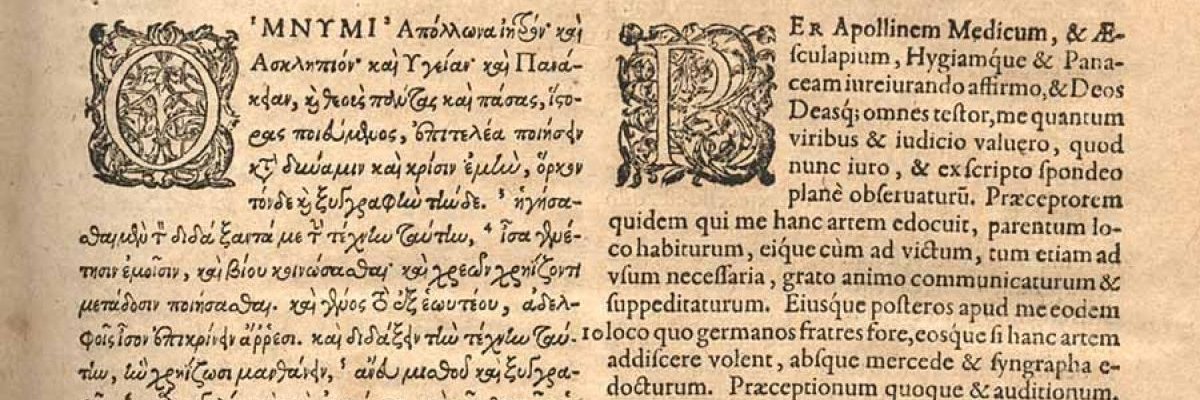 ὈΜΝΥΜΙ Ἀπόλλωνα ἰητρὸν καὶ
Ἀσκληπιὸν καὶ Ὑγείαν καὶ Πανά-
κειαν, καὶ θεοὺς πάντας καὶ πάσας, ἵστο-
ρας ποιεύμενος, ἐπιτελέα ποιήσειν
κατὰ δύναμιν καὶ κρίσιν ἐμὴν, ὅρκον
τόνδε καὶ ξυγγραφὴν τήνδε. ³ ἡγήσα-
σθαι μὲν τὸν διδάξαντά με τὴν τέχνην ταύτην, ⁴ ἴσα γενέ-
τησιν ἐμοῖσιν, καὶ βίου κοινώσασθαι, καὶ χρεῶν χρηΐζοντι
μετάδοσιν ποιήσασθαι. καὶ γένος τὸ ἐξ ἑωυτέου, ἀδελ-
φοῖς ἴσον ἐπικρινεῖν ἄῤῥεσι. καὶ διδάξειν τὴν τέχνην ταύ-
την, ἢν χρηΐζωσι μανθάνειν, ⁵ ἄνευ μισθοῦ καὶ ξυγγρα-
PER Apollinem Medicum, & Æ-
ſculapium, Hygiamque & Pana-
ceam iureiurando affirmo, & Deos
Deasq; omnes teſtor, me quantum
viribus & iudicio valuero, quod
nunc iuro, & ex ſcripto ſpondeo
planè obſeruaturũ. Præceptorem
quidem qui me hanc artem edocuit, parentum lo-
co habiturum, eique cùm ad victum, tum etiam ad
vſum neceſſaria, grato animo communicaturum &
ſuppeditaturum. Eiusque poſteros apud me eodem
10 loco quo germanos fratres fore, eosque ſi hanc artem
addiſcere volent, abſque mercede & ſyngrapha e-
docturum. Præceptionum quoque & auditionum,